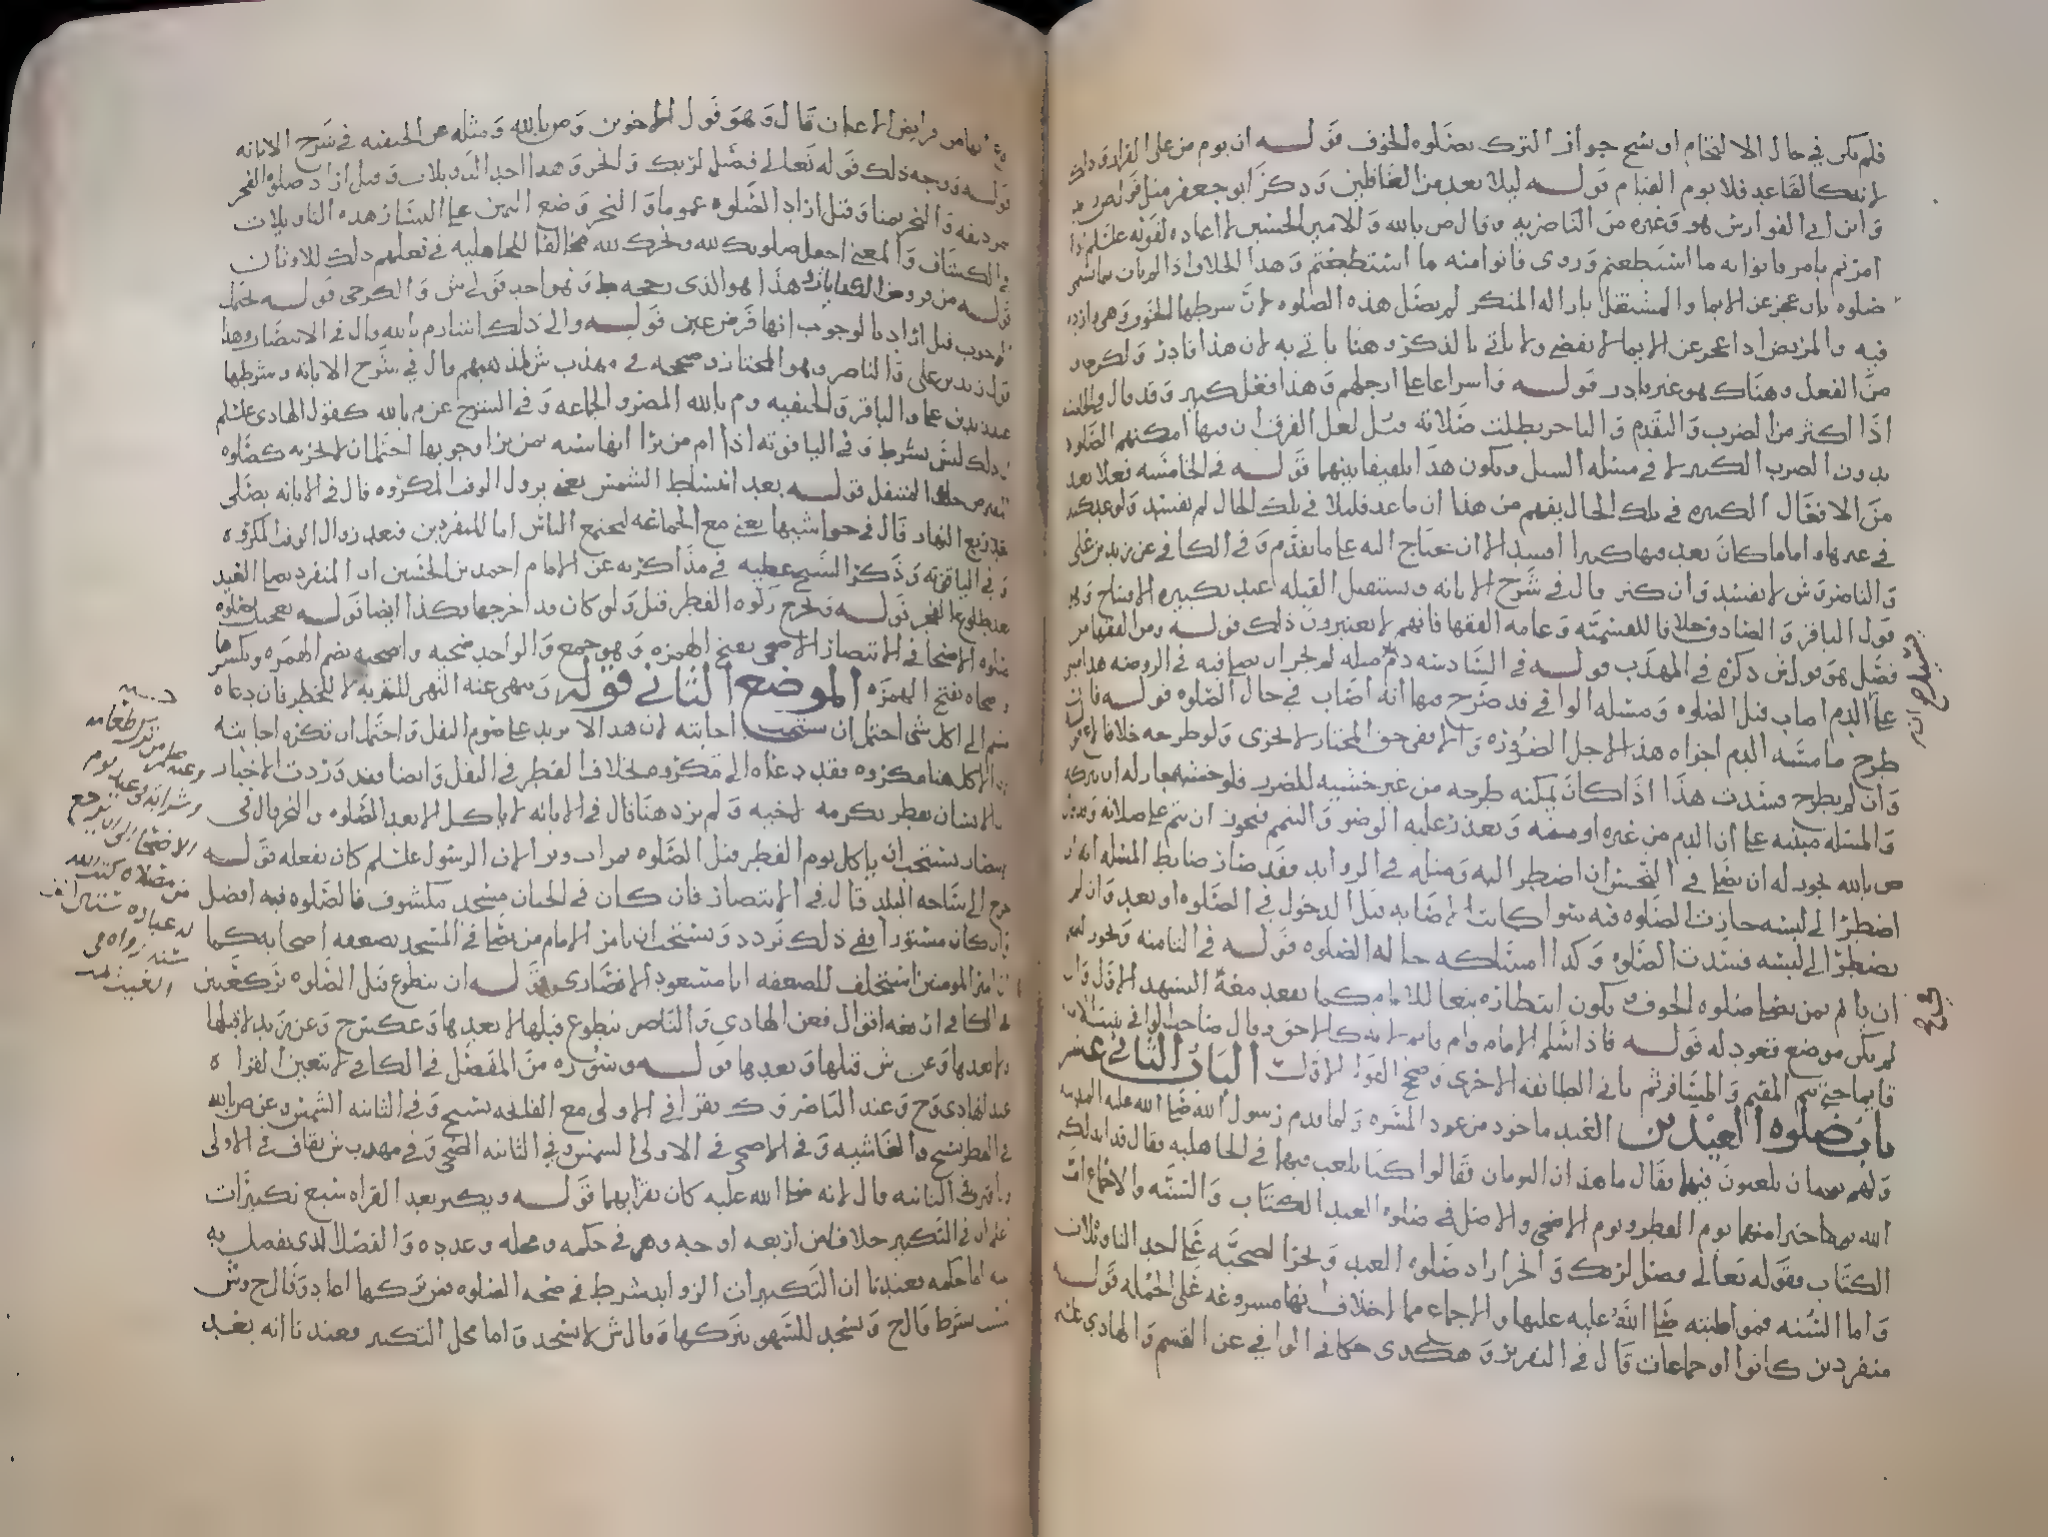 فلم يكن في حال الالتحام او نسخ جواز الترك بصلوه الخوف قوله ان يوم من على القراه وذلك
لانه كالقاعد فلا يوم القيام قوله ليلا يعد من الغافلين وذكر ابو جعفر مثل قولص بد
وابن ابي الفوارس هو وغيره من الناصريه وقال ص بالله والامير الحسين لا اعاده لقوله علىلم اذا
امرتم بامر فاتوا به ما استطعتم وروى فاتوا منه ما استطعتم وهذا الخلاف
صلوه بان عجز عن الايما والمستقل بازاله المنكر لم يصل هذه الصلوه لان شرطها الخوف وهو
فيه والمريض اذا عجز عن الايما لا يقضي ولا ياتي بالذكر وهنا ياتي به لان هذا قادر ولكن
من الفعل وهناك هو غير قادر قوله واسراعا على ارجلهم وهذا فعل كبير وقد قال
اذا اكثر من الضرب والتقدم والتاخر بطلت صلاته قيل لعل الفرق ان فيها امكنهم الصلوه
بدون الضرب الكثير لا في مسله السيل ويكون هذا تلفيقا بينهما قوله في الخامسه فعلا يعد
من الافعال الكثيره في تلك الحال يفهم من هذا ان ما عد قليلا في تلك الحال لم تفسد ولو عد كثيرا
في غيرها واما ما كان يعد فيها كثيرا افسد الا ان يحتاج اليه على ما تقدم وفي الكافي عن زيد بن على
والناصر وش لا تفسد وان كثر قال في شرح الابانه ويستقبل القبله عند تكبيره الافتتاح
قول الباقر والصادق خلافا للقسميه وعامه الفقها فانهم لا يعتبرون ذلك قوله ومن الفقها من
فصل هو قول ش ذكره في المهذب قوله في السادسه دم قبله لم يجز ان يصلي فيه في الروضه هذا
على الدم اصاب قبل الصلوه ومسله الوافي قد صرح فيها انه اصاب في حال الصلوه قوله فان
طرح ما مسه الدم اجزاه هذا لاجل الضروره والا ففي حق المختار لا يجزي ولو طرحه خلافا
وان لم يطرح فسدت هذا اذا كان يمكنه طرحه من غير خشيه للضرر فلو خشيه جاز له ان يتركه
والمسله مبنيه على ان الدم من غيره او منه وتعذر عليه الوضو والتيمم فيجوز ان يتم على صلاته
ص بالله يجوز له ان يصلي في النجس ان اضطر اليه ومثله في الزوايد فقد صار ضابط المسله انه ان
اضطر الى لبسه جازت الصلوه فيه سوا كانت الاصابه قبل الدخول في الصلوه او بعد وان لم
يضطر الى لبسه فسدت الصلوه وكذا امساكه حال الصلوه قوله في الثامنه ويجوز
ان ياتم بمن يصلي صلوه الخوف ويكون انتظاره تبعا للامام كما يقعد معه التشهد الاول وان
لم يكن موضع قعود له قوله فاذا سلم الامام وام
قايما حتى يتم المقيم والمسافر ثم ياتي الطايفه الاخرى وصحح القول الاول الباب الثاني عشر
باب صلوه العيدين العيد ماخوذ من عود المسره ولما قدم رسول الله صلى الله عليه المدينه
ولهم يومان يلعبون فيهما فقال ما هذان اليومان فقالوا كنا نلعب فيهما في الجاهليه فقال قد ابدلكم
الله بهما خيرا منهما يوم الفطر ويوم الاضحى والاصل في صلوه العيد الكتاب والسنه والاجماع اما
الكتاب فقوله تعالى فصل لربك وانحر اراد صلوه العيد ونحر الاضحيه على احد التاويلات
واما السنه فمواظبته صلى الله عليه عليها والاجماع مما لا خلاف انها مشروعه على الجمله قوله
منفردين كانوا او جماعات قال في التقرير وهكذى حكا في الوافي عن القسم والهادي
انها من فرايض الاعيان قال وهو قول الاخوين وص بالله ومثله عن الحنفيه في شرح الابانه
قوله ووجه ذلك قوله تعالى فصل لربك وانحر وهذا احد التاويلات وقيل اراد صلوه الفجر
بمزدلفه والنحر بمنا وقيل اراد الصلوه عموما والنحر وضع اليمين على اليسار هذه التاويلات
في الكشاف والمعنى اجعل صلوتك لله ونحرك لله مخالفا للجاهليه في فعلهم ذلك للاوثان
قوله من فروض الكفايات هذا هو الذي رجحه ط وهو احد قولي ش والكرخي قوله تحتمل
الوجوب قيل اراد بالوجوب انها فرض عين قوله والى ذلك اشار م بالله وقال في الانتصار وهذا
قول زيد بن على والناصر وهو المختار وصححه في مهذب ش لمذهبهم قال في شرح الابانه وشرطها
عند زيد بن على والباقر والحنفيه وم بالله المصر والجماعه وفي الشرح عن م بالله كقول الهادي علىلم
ان ذلك ليس بشرط وفي الياقوته اذا ام من يرا انها سنه بمن يرا وجوبها احتمل ان لا تجزيه كصلوه
المفترض خلف المتنفل قوله بعد انبساط الشمس يعني بزول الوقت المكروه قال في الابانه يصلي
عند ربع النهار قال في حواشيها يعني مع الجماعه ليجتمع الناس اما المنفردين فبعد زوال الوقت المكروه
وفي الياقوته وذكر الشيخ عطيه في مذاكرته عن الامام احمد بن الحسين ان المنفرد يصلي العيد
عند طلوع الفجر قوله وتخرج زكوه الفطر قيل ولو كان قد اخرجها وكذا ايضا قوله تعجيل صلوه
صلوه الاضحا في الانتصار الاضحى بفتح الهمزه وهو جمع والواحد ضحيه واضحيه بضم الهمزه وبكسرها
واضحاه بفتح الهمزه الموضع الثاني قوله ونهى عنه النهي للتقربه لا للخطر فان دعاه
مسلم الى اكل شي احتمل ان يستحب اجابته لان هذا لا يزيد على صوم النفل واحتمل ان تكره اجابته
لان الاكل هنا مكروه فقد دعاه الى مكروه بخلاف الفطر في النفل وايضا فقد وردت الاخبار
بالانسان يفطر بكرمه لاخيه ولم يرد هنا قال في الابانه لا ياكل الا بعد الصلوه والنحر قال في
الانتصار يستحب ان ياكل يوم الفطر قبل الصلوه تمرات وترا لان الرسول علىلم كان يفعله قوله
خرج الى ساحه البلد قال في الانتصار فان كان في الجبان مسجد مكشوف فالصلوه فيه افضل
وان كان مستورا ففي ذلك تردد ويستحب ان يامر الامام من يصلي في المسجد بضعفه اصحابه كما
ان امير المومنين استخلف للضعفه ابا مسعود الانصاري قوله ان يتطوع قبل الصلوه بركعتين
في الكافي اربعه اقوال فعن الهادي والناصر يتطوع قبلها لا بعدها وعكسه ح وعن زيد لا قبلها
ولا بعدها وعن ش قبلها وبعدها قوله وسوره من المفصل في الكافي لا تتعين القراه
عند الهادي وح وعند الناصر وك يقرا في الاولى مع الفاتحه سبح وفي الثانيه الشمس وعن ص بالله
في الفطر سبح والغاشيه وفي الاضحى في الاولى الشمس وفي الثانيه الضحى وفي مهذب ش بقاف في الاولى
واقتربت في الثانيه قال لانه صلى الله عليه كان يقرا بهما قوله ويكبر بعد القراه سبع تكبيرات
اعلم ان في التكبير خلاف من اربعه اوجه وهي في حكمه ومحله وعدده والفصل الذي يفصل به
بينه اما حكمه فعندنا ان التكبيرات الزوايد شرط في صحه الصلوه فمن تركها اعاد وقال ح وش
ليست بشرط قال ح ويسجد للسهو بتركها وقال ش لا يسجد واما محل التكبير فعندنا انه بعد